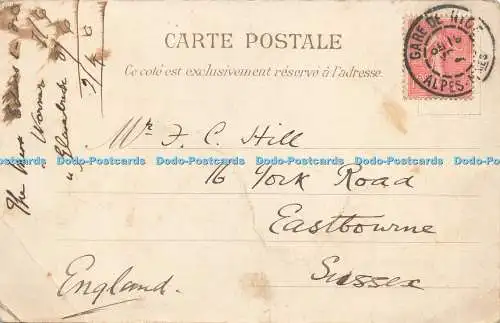 CARTE POSTALE
Ce coté est exclusivement réservé à l'adresse.
GARE DE NICE
ALPES-MMES
Mr F. C. Hill
Dodo-Postcards Dodo-Postcards Dodo-Postcards Dodo-Postcards Dodo-Postcards Dodo-Postcards
16 York Road
Eastbourne
Sussex
England.
The
Warner